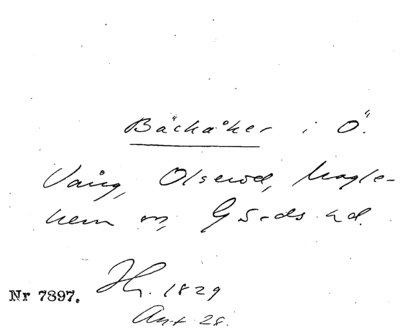 Bäckåker i Ö.
Vång, Olserød, Magle-
hem sn, Gärds hd.
Nr 7897. Hr. 1829
Ant 28.